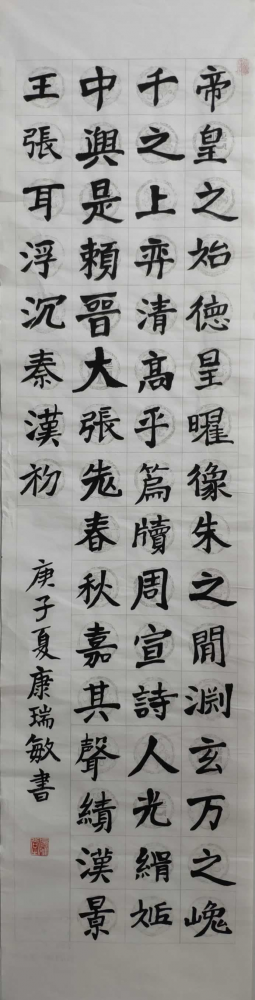 帝皇之始德皇曜像朱之間渊玄万之巍
千之上弈清高乎篇牘周宣詩人光緝姤
中興是賴晉大張老春秋嘉其聲績漢景
王張耳浮沉秦漢初
庚子夏康瑞敏書